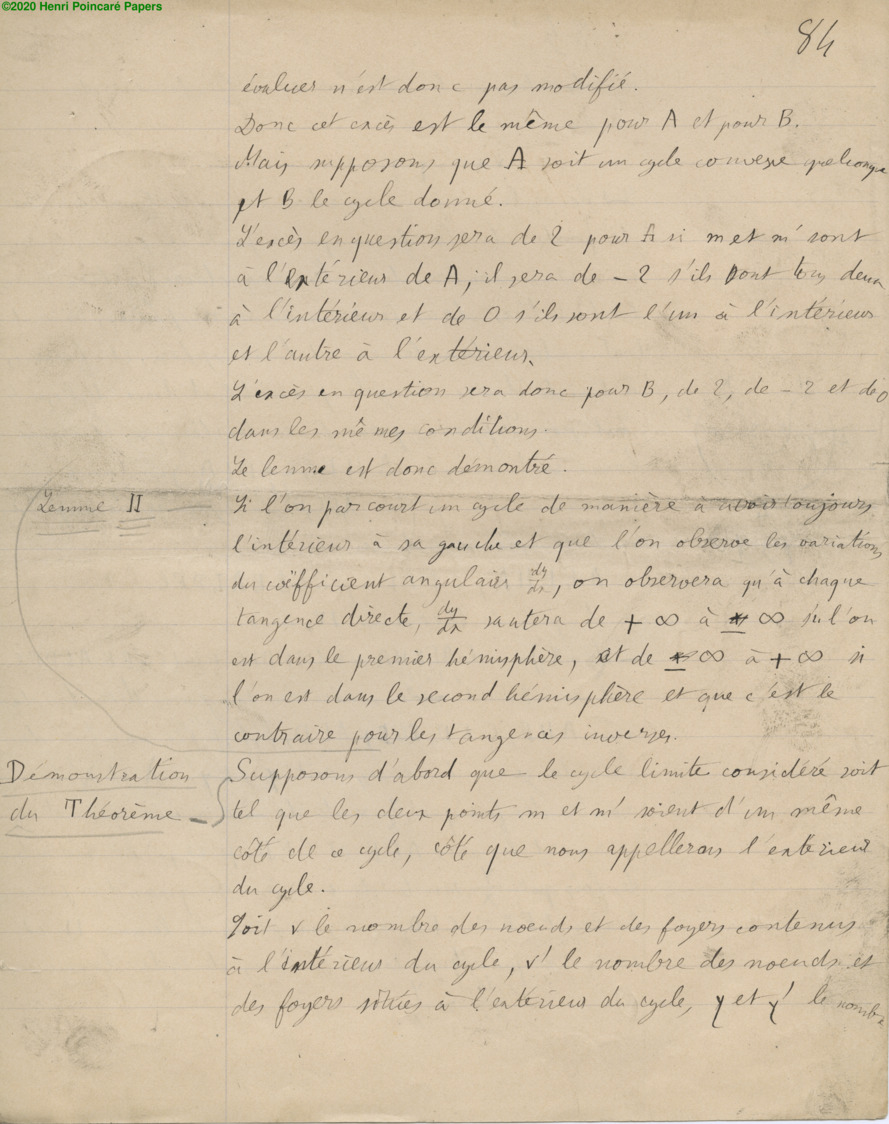 ©2020 Henri Poincaré Papers
84
évaluer n'est donc pas modifié.
Donc cet excès est le même pour A et pour B.
Mais supposons que A soit un cycle convexe quelconque
et B le cycle donné.
L'excès en question sera de 2 pour A si m et m' sont
à l'extérieur de A, il sera de - 2 s'ils sont tous deux
à l'intérieur et de 0 s'ils sont l'un à l'intérieur
et l'autre à l'extérieur.
L'excès en question sera donc pour B, de 2, de - 2 et de 0
dans les mêmes conditions.
Le lemme est donc démontré.
Lemme II
Si l'on parcourt un cycle de manière à avoir toujours
l'intérieur à sa gauche et que l'on observe les variations
du coëfficient angulaire dy/dx, on observera qu'à chaque
tangence directe, dy/dx sautera de + ∞ à - ∞ si l'on
est dans le premier hémisphère, et de - ∞ à + ∞ si
l'on est dans le second hémisphère et que c'est le
contraire pour les tangences inverses.
Démonstration
du Théorème _
Supposons d'abord que le cycle limite considéré soit
tel que les deux points m et m' soient d'un même
côté de ce cycle, côté que nous appellerons l'extérieur
du cycle.
Soit ν le nombre des noeuds et des foyers contenus
à l'intérieur du cycle, ν' le nombre des noeuds et
des foyers situés à l'extérieur du cycle, γ et γ' le nombre